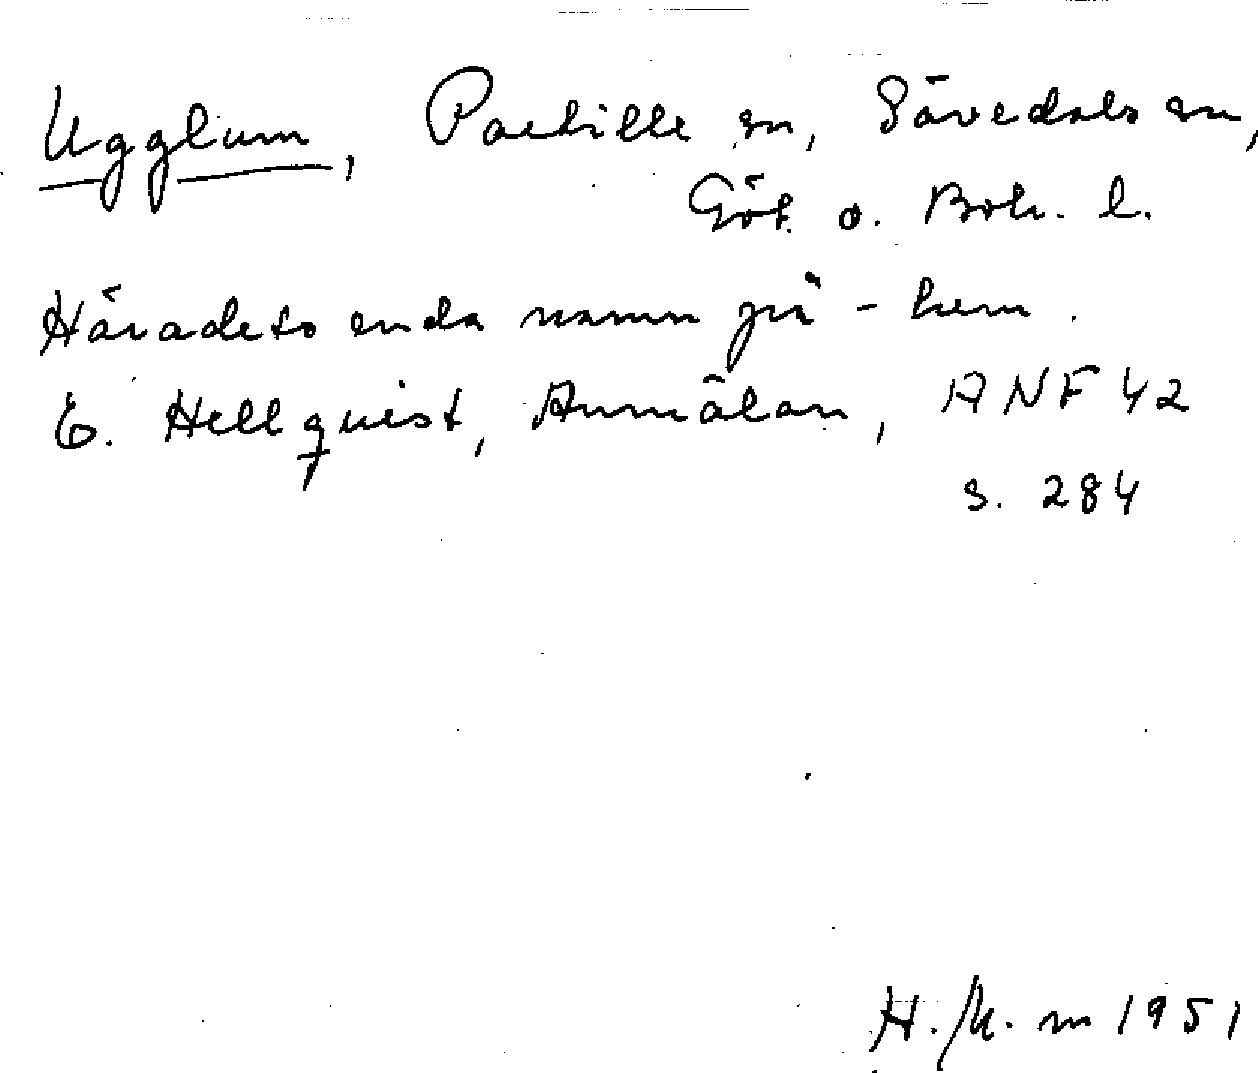 Ugglum, Partille sn, Sävedals sn,
Göt. o. Boh. l.
Häradets enda namn på -hem.
E. Hellquist, Anmälan, ANF 42
s. 284
1951